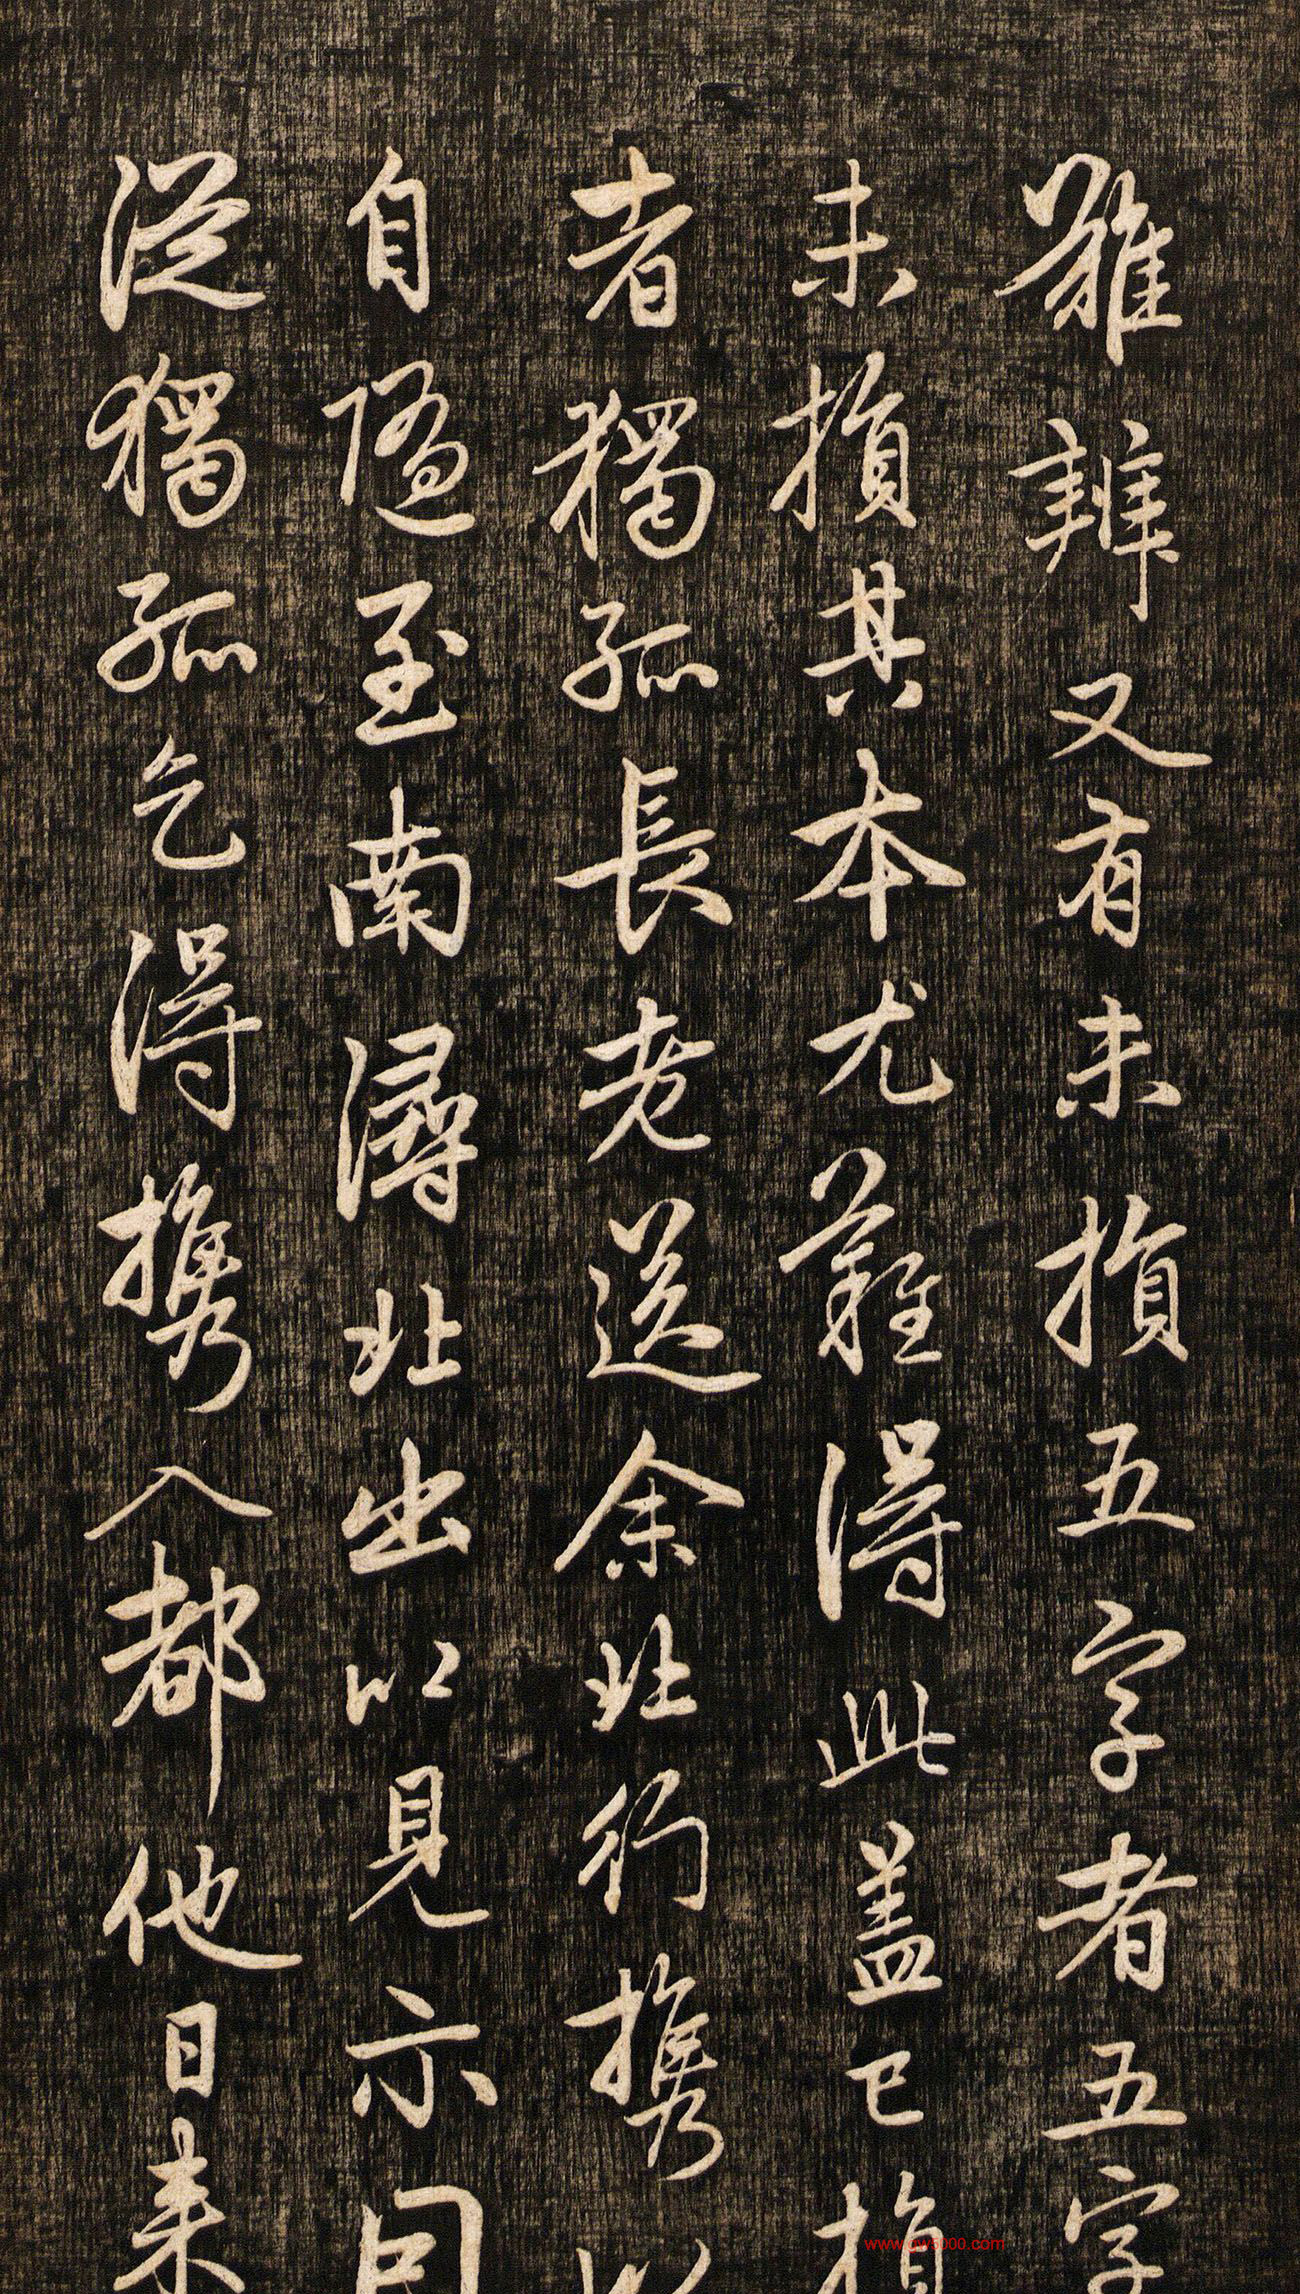 難辨又有未損五字者五字
未損其本尤難得此盖已損
者獨孤長老送余北行携以
自隨至南潯北出以見示因
從獨孤乞得携入都他日来
www.gw5000.com